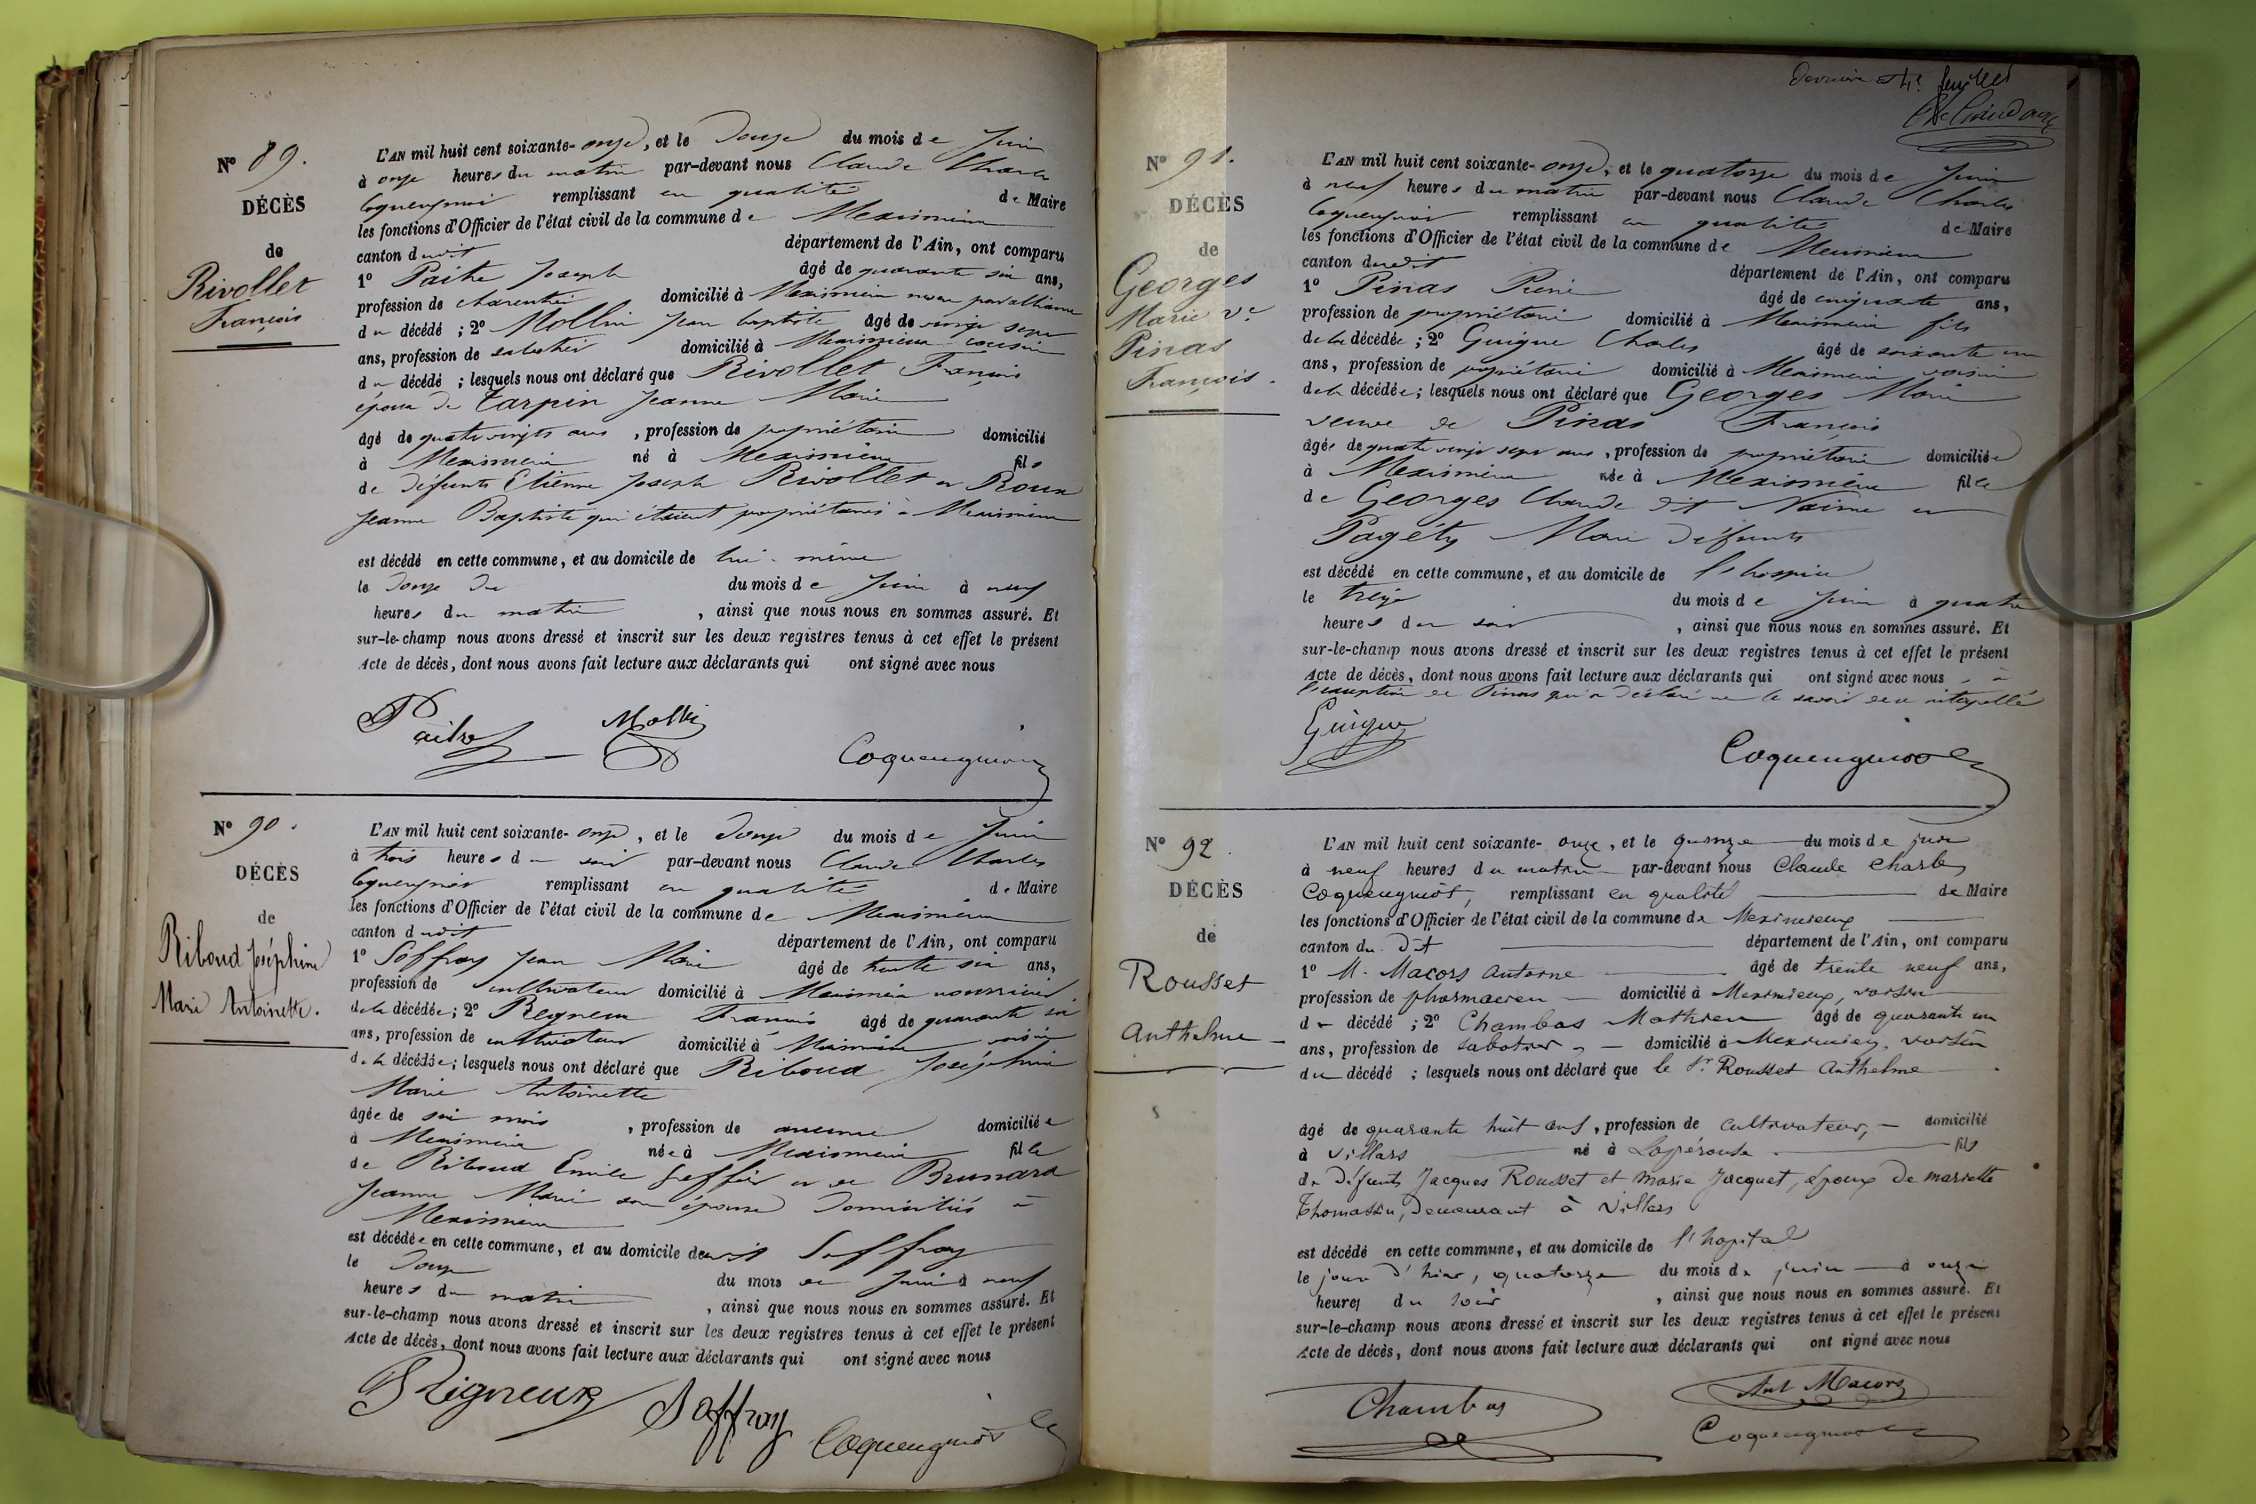 N° 89.
DÉCÈS
de
Rivollet
François
L'AN mil huit cent soixante-onze, et le douze du mois de Juin
à onze heures du matin par-devant nous Claude Charles
Coquengniot remplissant en qualité de Maire
les fonctions d'Officier de l'état civil de la commune de Meximieux
canton dudit département de l'Ain, ont comparu
1° Paitre Joseph âgé de quarante six ans,
profession de charcutier domicilié à Meximieux neveu par alliance
du décédé ; 2° Mollin Jean baptiste âgé de vingt sept
ans, profession de sabotier domicilié à Meximieux cousin
du décédé ; lesquels nous ont déclaré que Rivollet François
époux de Tarpin Jeanne Marie
âgé de quatre vingts ans , profession de propriétaire domicilié
à Meximieux né à Meximieux fils
de défunts Etienne Joseph Rivollet et Roux
Jeanne Baptiste qui étaient propriétaires à Meximieux
est décédé en cette commune, et au domicile de lui-même
le douze du du mois de Juin à neuf
heures du matin , ainsi que nous nous en sommes assuré. Et
sur-le-champ nous avons dressé et inscrit sur les deux registres tenus à cet effet le présent
Acte de décès, dont nous avons fait lecture aux déclarants qui ont signé avec nous
Paitre Mollin
Coquengniot
N° 90.
DÉCÈS
de
Riboud Joséphine
Marie Antoinette.
L'AN mil huit cent soixante-onze, et le douze du mois de Juin
à trois heures du soir par-devant nous Claude Charles
Coquengniot remplissant en qualité de Maire
les fonctions d'Officier de l'état civil de la commune de Meximieux
canton dudit département de l'Ain, ont comparu
1° Soffray Jean Marie âgé de trente six ans,
profession de cultivateur domicilié à Meximieux nourricier
de la décédée ; 2° Reigneux François âgé de quarante six
ans, profession de cultivateur domicilié à Meximieux voisin
de la décédée ; lesquels nous ont déclaré que Riboud Joséphine
Marie Antoinette
âgée de six mois , profession de aucune domiciliée
à Meximieux née à Meximieux fille
de Riboud Emile greffier et de Brunard
Jeanne Marie son épouse domiciliés à
Meximieux
est décédée en cette commune, et au domicile dudit Soffray
le douze du mois de Juin à neuf
heures du matin , ainsi que nous nous en sommes assuré. Et
sur-le-champ nous avons dressé et inscrit sur les deux registres tenus à cet effet le présent
Acte de décès, dont nous avons fait lecture aux déclarants qui ont signé avec nous
Reigneux Soffray Coquengniot
feuillet
N° 91.
DÉCÈS
de
Georges
Marie Ve
Pinas
François.
L'AN mil huit cent soixante-onze, et le quatorze du mois de Juin
à neuf heures du matin par-devant nous Claude Charles
Coquengniot remplissant en qualité de Maire
les fonctions d'Officier de l'état civil de la commune de Meximieux
canton dudit département de l'Ain, ont comparu
1° Pinas René âgé de cinquante ans,
profession de propriétaire domicilié à Meximieux fils
de la décédée ; 2° Guigue Charles âgé de soixante un
ans, profession de propriétaire domicilié à Meximieux voisin
de la décédée ; lesquels nous ont déclaré que Georges Marie
veuve de Pinas François
âgée de quatre vingt sept ans , profession de propriétaire domiciliée
à Meximieux née à Meximieux fille
de Georges Claude dit Naime et
Pagéty Marie défunts
est décédé en cette commune, et au domicile de l'hospice
le treize du mois de Juin à quatre
heures du soir , ainsi que nous nous en sommes assuré. Et
sur-le-champ nous avons dressé et inscrit sur les deux registres tenus à cet effet le présent
Acte de décès, dont nous avons fait lecture aux déclarants qui ont signé avec nous à
l'exception de Pinas qui a déclaré ne le savoir de ce interpellé
Guigue
Coquengniot
N° 92.
DÉCÈS
de
Rousset
Anthelme
L'AN mil huit cent soixante-onze, et le quinze du mois de juin
à neuf heures du matin par-devant nous Claude Charles
Coquengniot, remplissant en qualité de Maire
les fonctions d'Officier de l'état civil de la commune de Meximieux
canton du dit département de l'Ain, ont comparu
1° M. Macors Antoine âgé de trente neuf ans,
profession de pharmacien domicilié à Meximieux, voisin
du décédé ; 2° Chambas Mathieu âgé de quarante un
ans, profession de sabotier, domicilié à Meximieux, voisin
du décédé ; lesquels nous ont déclaré que le Sr Rousset Anthelme
âgé de quarante huit ans, profession de cultivateur, domicilié
à Villars né à Lapérouse fils
de défunts Jacques Rousset et Marie Jacquet, époux de Mariette
Thomassin, demeurant à Villars
est décédé en cette commune, et au domicile de l'hopital
le jour d'hier, quatorze du mois de juin à onze
heures du soir , ainsi que nous nous en sommes assuré. Et
sur-le-champ nous avons dressé et inscrit sur les deux registres tenus à cet effet le présent
Acte de décès, dont nous avons fait lecture aux déclarants qui ont signé avec nous
Chambas Ant Macors
Coquengniot